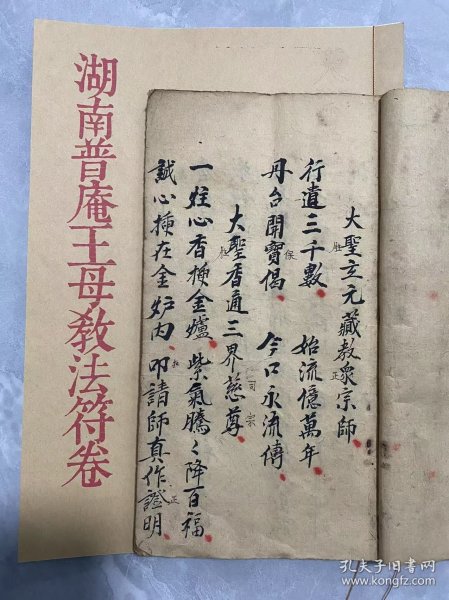 湖南普庵王母教法符卷
大聖玄元藏教眾宗師
行遺三千數 始流億萬年
丹台開寶偈 今口永流傳
大聖香通三界慈尊
一炷心香插金爐 紫氣騰々降百福
誠心插在金炉内 叩諸師真作證明
孔夫子旧书网
www.kongfz.com